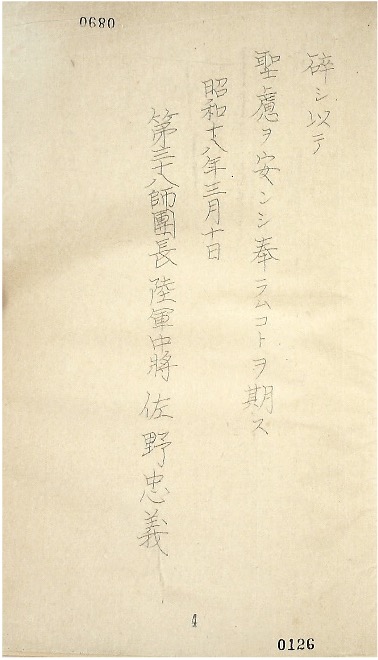 0680
碎シ以テ
聖慮ヲ安ンシ奉ラムコトヲ期ス
昭和十八年三月十日
第三十八師團長陸軍中將佐野忠義
4
0126